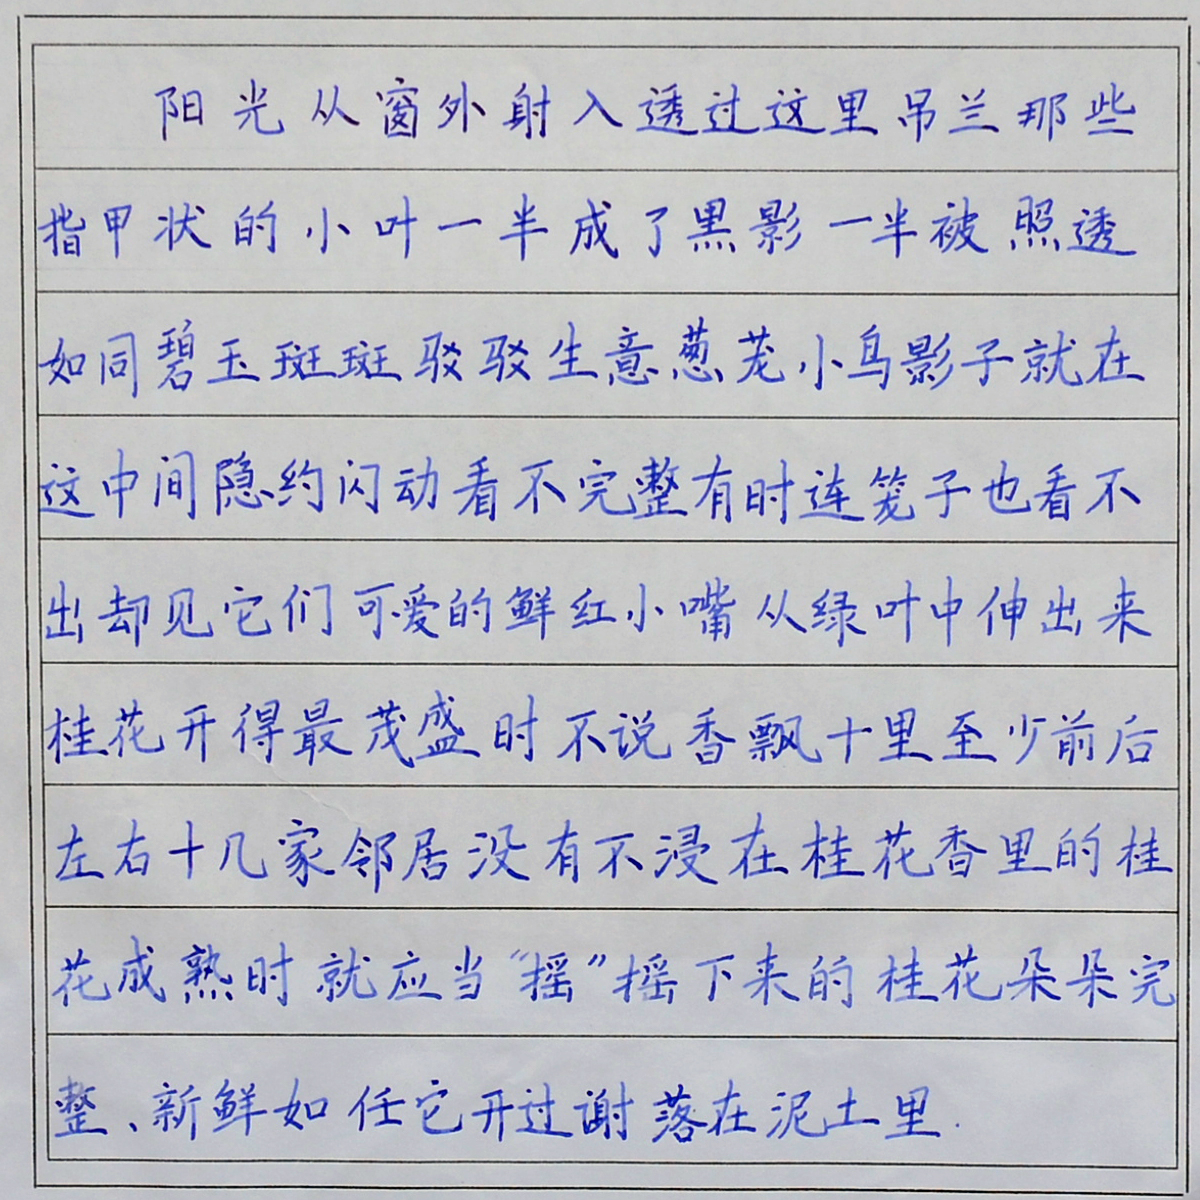 阳光从窗外射入透过这里吊兰那些
指甲状的小叶一半成了黑影一半被照透
如同碧玉斑斑驳驳生意葱茏小鸟影子就在
这中间隐约闪动看不完整有时连笼子也看不
出却见它们可爱的鲜红小嘴从绿叶中伸出来
桂花开得最茂盛时不说香飘十里至少前后
左右十几家邻居没有不浸在桂花香里的桂
花成熟时就应当“摇”摇下来的桂花朵朵完
整、新鲜如任它开过谢落在泥土里.